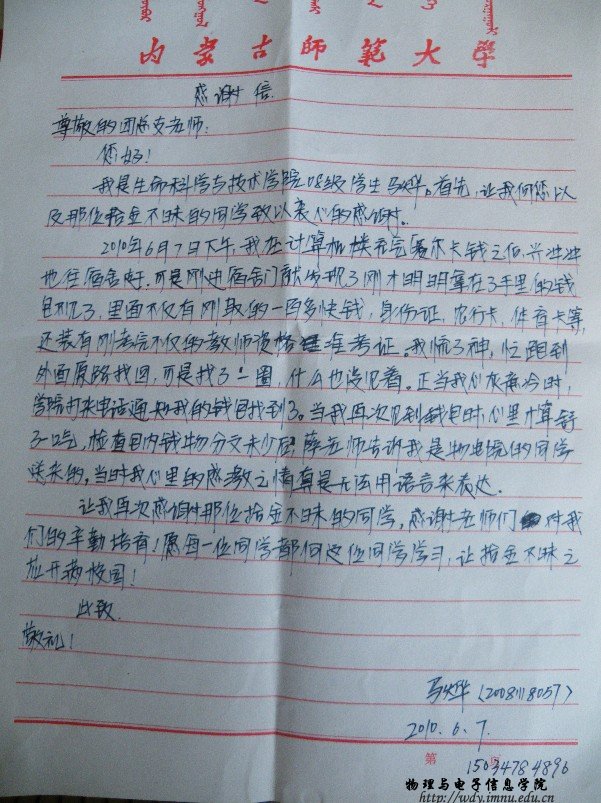 内蒙古师范大学
感谢信
尊敬的团总支老师:
您好!
我是生命科学与技术学院08级学生马烨。首先,让我向您以
及那位拾金不昧的同学致以衷心的感谢。
2010年6月7日下午,我在计算机楼充完爱尔卡钱之后,兴冲冲
地往宿舍走。可是刚进宿舍门就发现了刚才明明拿在了手里的钱
包不见了,里面不仅有刚取的一百多块钱,身份证,农行卡,体育卡等,
还装有刚考完不久的教师资格证准考证。我慌了神,忙跑到
外面原路找回,可是找了一圈,什么也没见着。正当我心灰意冷时,
学院打来电话通知我的钱包找到了。当我再次见到钱包时,心里才算舒
了一口气,检查包内钱物分文未少后,薛老师告诉我是物电院的同学
送来的,当时我心里的感激之情真是无法用语言来表达。
让我再次感谢那位拾金不昧的同学,感谢老师们对我
们的辛勤培育!愿每一位同学都向这位同学学习,让拾金不昧之
花开满校园!
此致
敬礼!
马烨(20081118057)
2010.6.7
第 页
15034784896
物理与电子信息学院
http://wdy.imnu.edu.cn